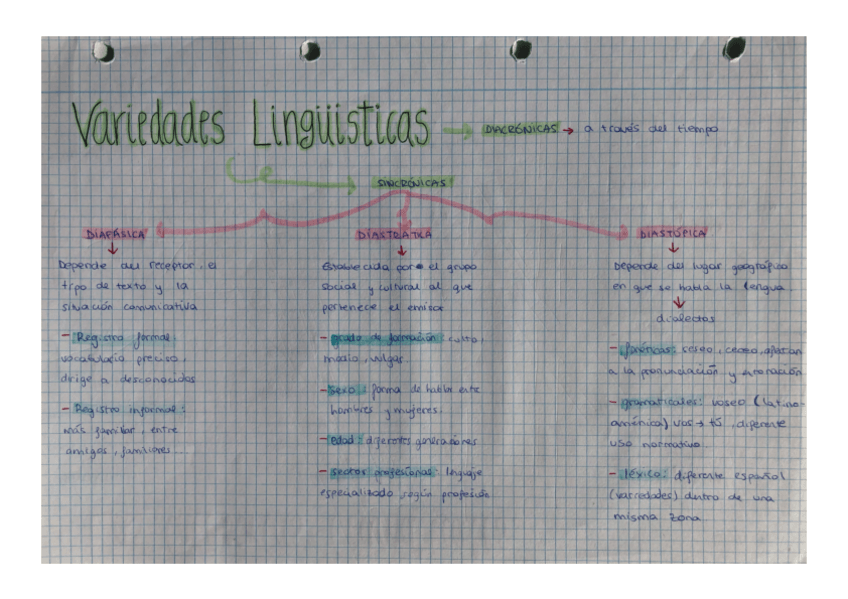 Variedades Lingüísticas → DIACRÓNICAS → a través del tiempo
SINCRÓNICAS
DIAFÁSICA
Depende del receptor, el
tipo de texto y la
situación comunicativa
- Registro formal:
vocabulario preciso,
dirige a desconocidos
- Registro informal:
más familiar, entre
amigos, familiares...
DIASTRÁTICA
Establecida por el grupo
social y cultural al que
pertenece el emisor
- grado de formación: culto,
medio, vulgar.
- Sexo: forma de hablar entre
hombres y mujeres.
- edad: diferentes generaciones
- sectores profesionales: lenguaje
especializado, según profesión
DIASTÓPICA
Depende del lugar geográfico
en que se habla la lengua.
dialectos
- fónicas: seseo, ceceo, afectan
a la pronunciación y entonación
- gramaticales: voseo (latino-
américa) vos → tú, diferente
uso normativo.
- léxico: diferente español
(variedades) dentro de una
misma zona